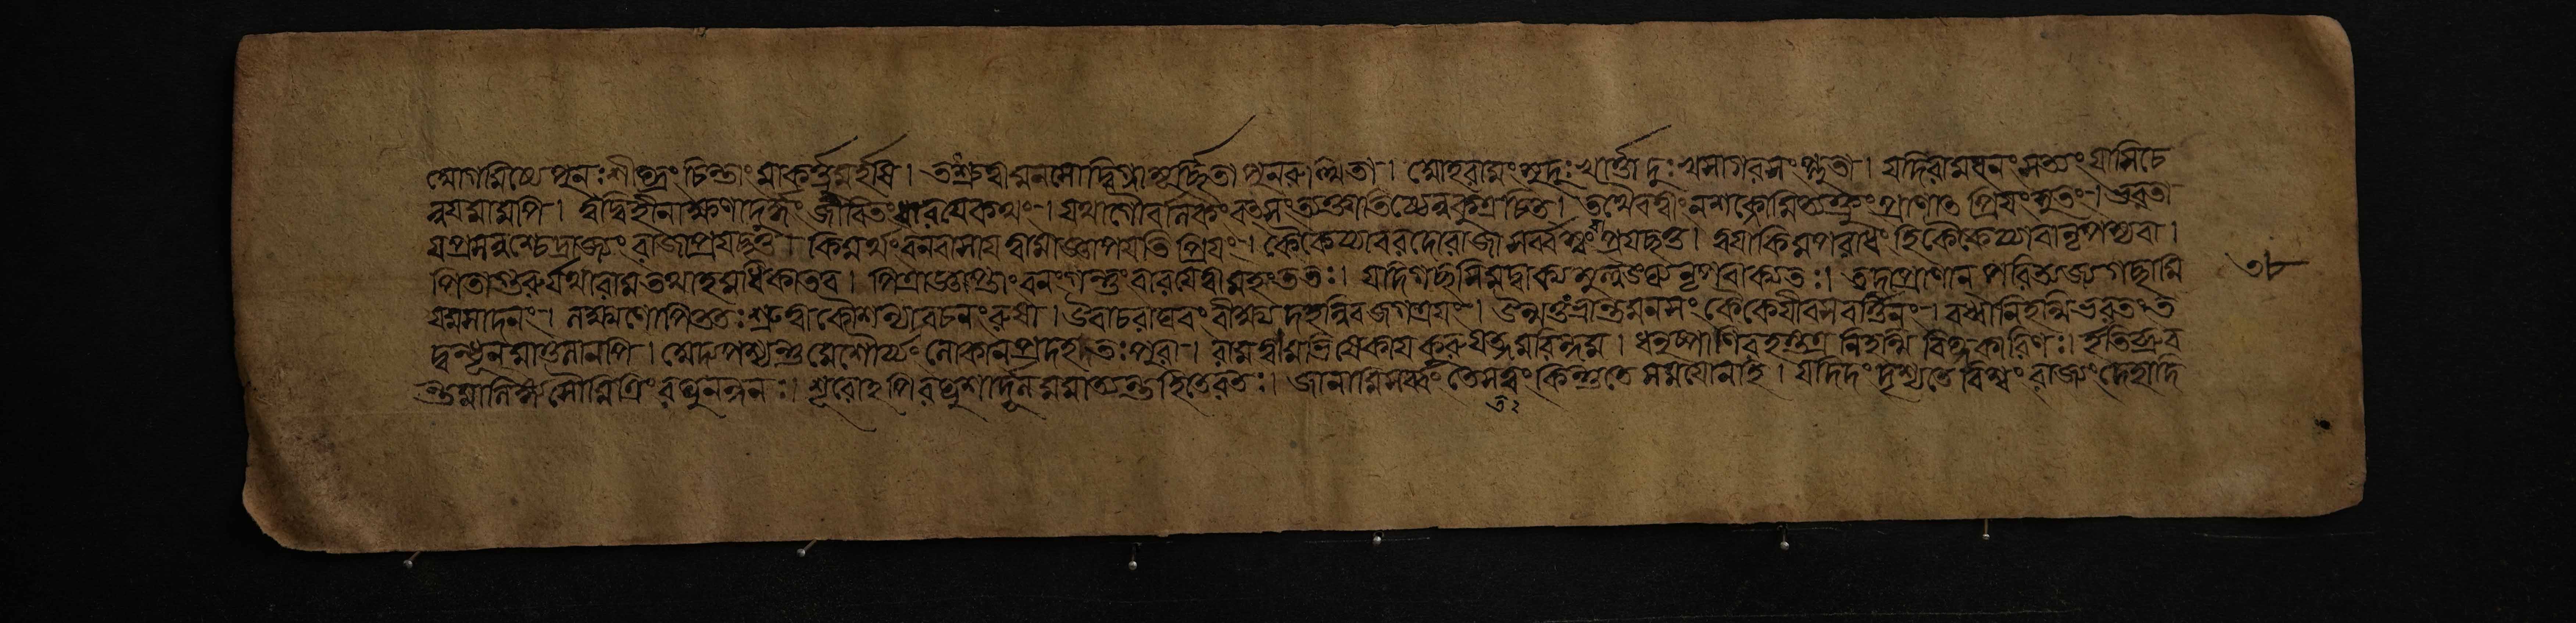 আগমিষ্যে পুনঃ শীঘ্রং চিন্তাং মাকর্ত্তুমর্হসি । তৎশ্রুত্বা মনসোদ্বিগ্না মূর্চ্ছিতা পুনরুত্থিতা । আহ রামং সুদুঃখার্ত্তা দুঃখসাগরসংপ্লুতা । যদি রাম বনং সত্যং যাসি চে
ন্নয মামপি । ত্বদ্বিহীনা ক্ষণার্দ্ধং জীবিতং ধারযে কথং । যথা গৌর্বালকং বৎসং ত্যক্ত্বা তিষ্ঠেন্ন কুত্রচিৎ । তথৈব ত্বাং ন শক্নোমি ত্যক্তুং প্রাণাৎ প্রিযং সুতং । ভরতা
য প্রসন্নশ্চেদ্রাজ্যং রাজা প্রযচ্ছতু । কিমর্থং বনবাসায ত্বামাজ্ঞাপযতি প্রিযং । কৈকেয্যা বরদো রাজা সর্ব্বস্বং প্রযচ্ছতু । ত্বযা কিমপরাধং হি কৈকেয্যা বা নৃপস্য বা ।
পিতা গুরুর্যথা রাম তথাহমধিকা তব । পিত্রাজ্ঞপ্তো বনং গন্তুং বারযে ত্বামহং ততঃ । যদি গচ্ছসি মদ্বাক্যমুল্লঙ্ঘ্য নৃপবাক্যতঃ । তদা প্রাণান পরিত্যজ্য গচ্ছামি ৩৮
যমসাদনং । লক্ষ্মণোপি ততঃ শ্রুত্বা কৌশল্যাবচনং রুষা । উবাচ রাঘবং বীক্ষ্য দহন্নিব জগত্রযং । উন্মত্তং ভ্রান্তমনসং কৈকেযীবসবর্ত্তিনং । বধ্বা নিহন্মি ভরতং ত
দ্বন্ধূন মাতুলানপি । অদ্য পশ্যন্তু মে শৌর্য্যং লোকান প্রদহতঃ পুরা । রাম ত্বমভিষেকায কুরু যত্নমরিন্দম । ধনুষ্পাণিরহন্তত্র নিহন্মি বিঘ্নকারিণঃ । ইতি ব্রুব
ন্তমালিঙ্গ্য সৌমিত্রিং রঘুনন্দনঃ । শূরোঽপি রঘুশার্দূল মমাত্যন্তহিতেরতঃ । জানামি সর্ব্বং তে সত্বং কিন্তু তে সমযো নহি । যদিদং দৃশ্যতে বিশ্বং রাজ্যং দেহাদি